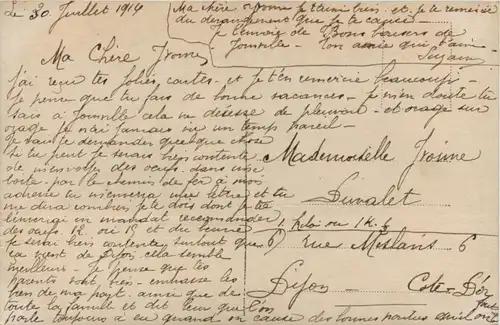 Le 30 Juillet 1914
Ma Chère Yvonne je t'aime bien et je te remercie
du dérangement que je te cause
Je t'envoie de Bons baisers de
Joinville - ton amie qui t'aime
Suzanne
Ma Chère Yvonne
J'ai reçu tes jolies cartes et je t'en remercie beaucoup
Je pense que tu fais de bonne vacances je m'en doute tu
sais à Joinville cela ne désesse de pleuvoir et orage sur
orage je n'ai jamais vu un temps pareil
Je vais je demander quelque chose
si tu peut je serais très contente
de m'envoyer des oeufs dans une
boite par le chemin de fer à mon
adresse tu m'enverra une lettre et tu
me dira combien je te dois dont je te
l'envergi un mandat recommander
des oeufs 12 ou 15 et du beurre
je serai bien contente surtout que
ça vient de Dijon cela semble
meilleurs - Je pense que tes
parents sont bien embrasse les
bien de ma part ainsi que de
toute la famille et dit leur que l'on
parle toujours d'eu quand on cause des bonnes parties qu'il ont
Mademoiselle Yvonne
Duvalet
1 kilo ou 1 K ½
6 rue Meslans 6
Dijon
Côte-d'Or